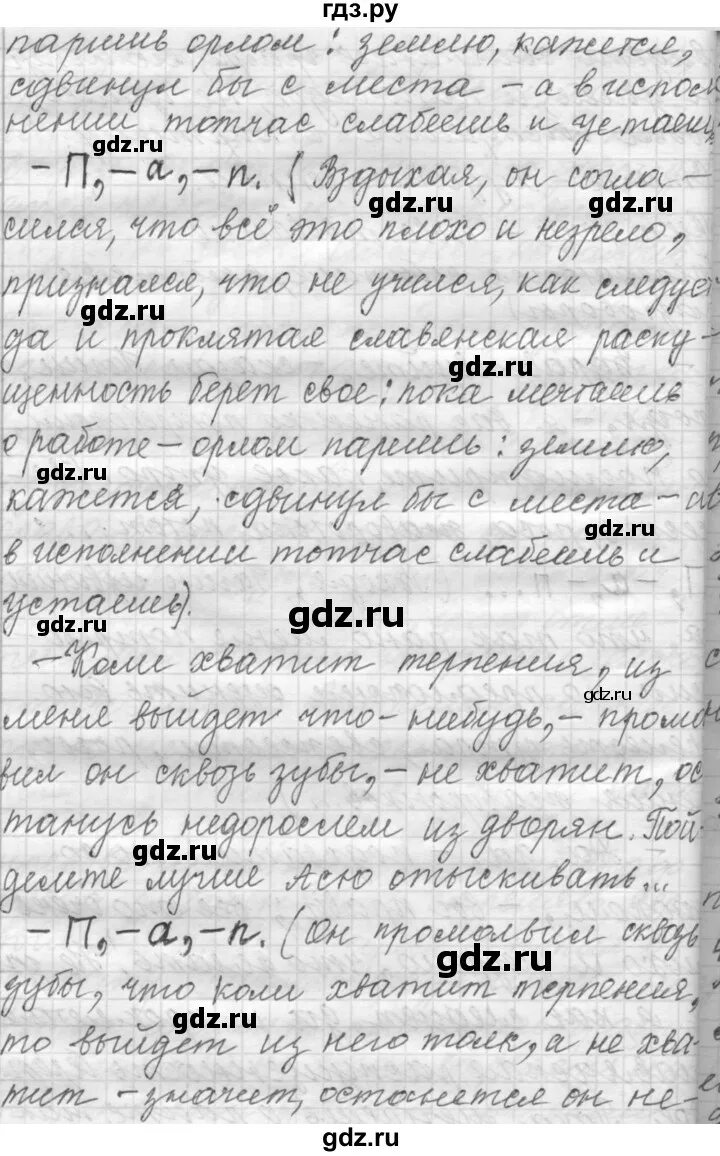 гдз.ру
паришь орлом: землю, кажется,
сдвинул бы с места – а в испол
нении тотчас слабеешь и устаешь
gdz.ru
– П, – а, – п. (Вздыхая, он согла –
gdz.ru gdz.ru
сился, что всё это плохо и незрело,
признался, что не учился, как следует
gdz.ru
да и проклятая славянская распу –
gdz.ru
щенность берет свое: пока мечтаешь
о работе – орлом паришь: землю,
gdz.ru
кажется, сдвинул бы с места – а
gdz.ru
в исполнении тотчас слабеешь и
устаешь).
gdz.ru
– Коли хватит терпения, из
gdz.ru
меня выйдет что-нибудь, – промол
вил он сквозь зубы, – не хватит, ос
танусь недорослем из дворян. Пой-
gdz.ru
демте лучше Асю отыскивать...
– П, – а, – п. (Он промолвил сквозь
gdz.ru
зубы, что коли хватит терпения,
gdz.ru
то выйдет из него толк, а не хва-
тит – значит, останется он не-
gdz.ru